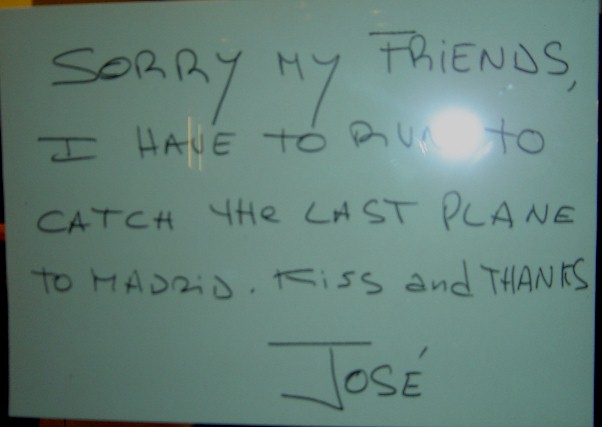 SORRY MY FRIENDS,
I HAVE TO RUN TO
CATCH THE LAST PLANE
TO MADRID. KISS and THANKS
JOSÉ